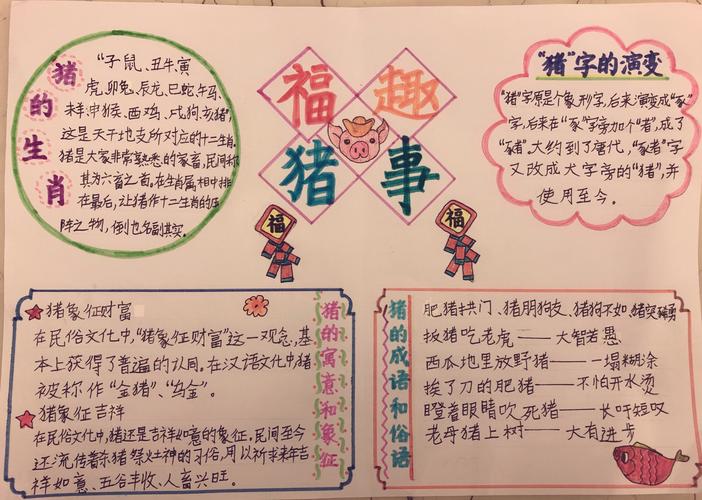 猪的生肖
"子鼠、丑牛、寅
虎、卯兔、辰龙、巳蛇、午马、
未羊申猴、酉鸡、戌狗、亥猪",
这是天干地支所对应的十二生肖。
猪是大家非常熟悉的家畜,民间称
其为六畜之首。在生肖属相中排
在最后,让猪作十二生肖的压
阵之物,倒也名副其实。
福 趣
猪 事
福
福
"猪"字的演变
"猪"字原是个象形字,后来演变成"豕"
字,后来在"豕"字旁加个"者",成了
"豬"大约到了唐代,"豕者"字
又改成犬字旁的"猪",并
使用至今。
猪的寓意和象征
猪象征财富
在民俗文化中,"猪象征财富"这一观念,基
本上获得了普遍的认同。在汉语文化中猪
被称作"金猪"、"乌金"。
猪象征吉祥
在民俗文化中,猪还是吉祥如意的象征。民间至今
还流传着杀猪祭灶神的习俗,用以祈求来年吉
祥如意、五谷丰收、人畜兴旺。
猪的成语和俗语
肥猪拱门、猪朋狗友、猪狗不如、猪突豨勇
扮猪吃老虎——大智若愚
西瓜地里放野猪——一塌糊涂
挨了刀的肥猪——不怕开水烫
瞪着眼睛吹死猪——长吁短叹
老母猪上树——大有进步